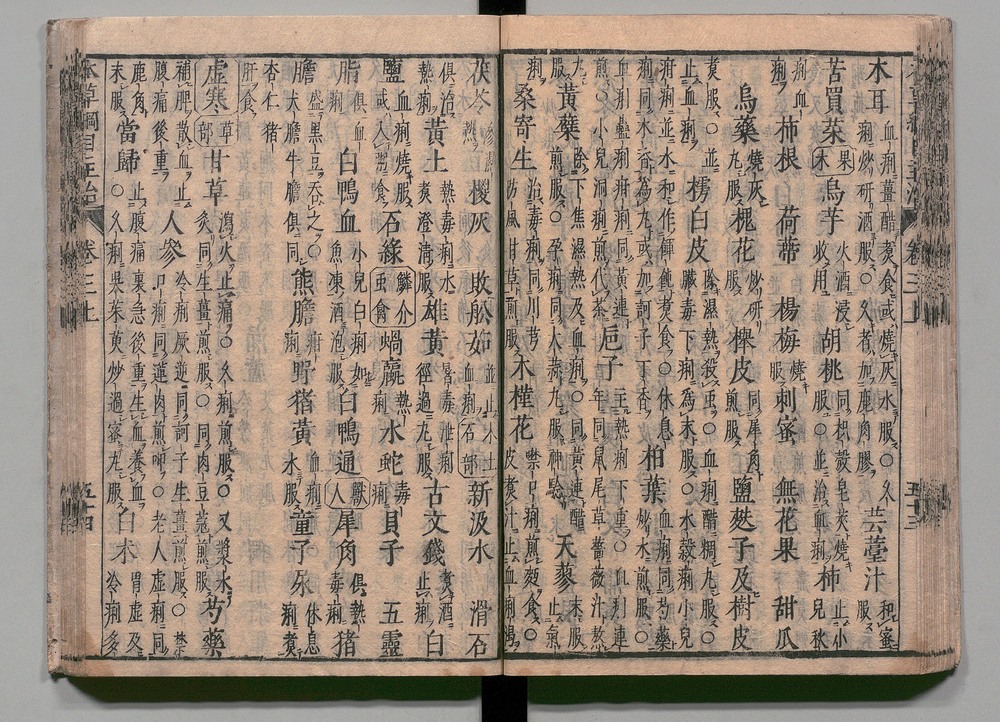 木耳 血痢薑醋煮食或燒灰水服○久痢炒研酒服○久者加鹿角膠 芸薹汁 和蜜服
苦買菜 果木 烏芋 火酒浸收用 胡桃 同枳殼皂莢燒服○並治血痢 柿 止小兒秋痢
血痢 柿根 白荷蒂 楊梅 燒服 刺蜜 無花果 甜瓜
烏藥 燒灰丸服 槐花 炒研服 櫸皮 同犀角煎服 鹽麩子及樹皮
煮服○並止血痢 樗白皮 除濕熱殺虫○血痢醋糊丸服○臟毒下痢為末服○水穀痢小兒
疳痢並水和作餛飩煮食○休息痢同木香為丸或加訶子丁香 柏葉 血痢同芍藥炒水煎服
血痢蠱痢疳痢同黃連煎○小兒洞痢煎代茶 梔子 主熱痢下重○血痢連年同鼠尾草薔薇汁熬
丸服 黃蘗 除下焦濕熱及血痢○同黃連醋煎服神驗○孕痢同大蒜丸服 天蓼 末服止氣
痢 桑寄生 治毒痢同川芎防風甘草煎服 木槿花 噤口痢煎麪食○皮煮汁止血痢渴
茯苓 㯶灰 敗船茹 並止血痢 石部 水土 新汲水 滑石
俱治熱痢 黃土 熱毒痢水煮澄清服 雄黃 暑毒泄痢經過丸服 古文錢 煮酒止痢 白
鹽 血痢燒服或入粥食 石綠 鱗介虫禽 蝸蠃 熱痢 水蛇 毒痢 貝子 五靈
脂 俱血痢 白鴨血 小兒白痢如魚凍酒泡服 白鴨通 獸人 犀角 俱熱毒痢 猪
膽 盛黑豆吞之○犬膽牛膽俱同 熊膽 疳痢 野猪黃 血痢水服 童子尿 休息痢煮
杏仁猪肝食
虛寒 草部 甘草 瀉火止痛○久痢煎服○又漿水炙同生薑煎服○同肉豆蔻煎服 芍藥
補脾散血止腹痛後重 人參 冷痢厥逆同訶子生薑煎服○禁口痢同蓮肉煎呷○老人虛痢同
鹿角末服 當歸 止腹痛裏急後重生血養血○久痢吳茱萸炒過蜜丸服 白朮 胃虛及冷痢多
本草綱目主治 卷三上 五十四